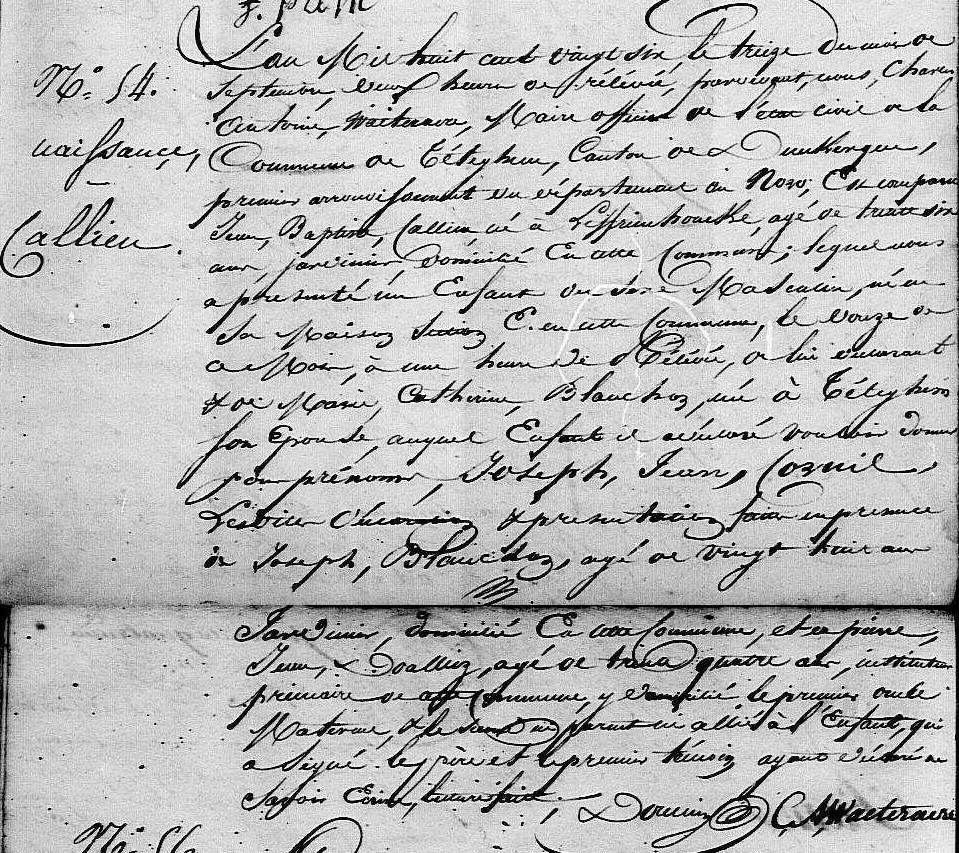 N.o 54.
naissance,
Callieu.
L'an Mil huit cent vingt six, le treize du mois de
septembre, deux heures de rélévée, pardevant, nous, Charles
Antoine, Waeteraere, Maire officier de l'état civil de la
Commune de Téteghem, Canton de Dunkerque,
premier arrondissement du département du Nord; Est comparu
Jean, Baptiste, Callieu né à Leffrinhoucke, agé de trente six
ans, jardinier domicilié En cette Commune; lequel nous
a présenté un Enfant du sexe Masculin, né en
Sa Maison Section E. en cette Commune, le douze de
ce Mois, à une heure de Rélévée, de lui déclarant
& de Marie, Catherine, Blanckaz, née à Téteghem
son Epouse, auquel Enfant il a déclaré vouloir donner
pour prénoms, Joseph, Jean, Cornil.
Lesdites déclaration & présentation faites en présence
de Joseph, agé de vingt huit ans
Jardinier, domicilié En cette Commune, et de pierre,
Jean, agé de trente quatre ans, instituteur
primaire de cette Commune, y domicilié le premier oncle
Maternel, & le second ni parent ni allié à l'Enfant, qui
a Signé. le père et le premier témoin ayant déclaré ne
Savoir Ecrire, lecture faite.
Waeteraere